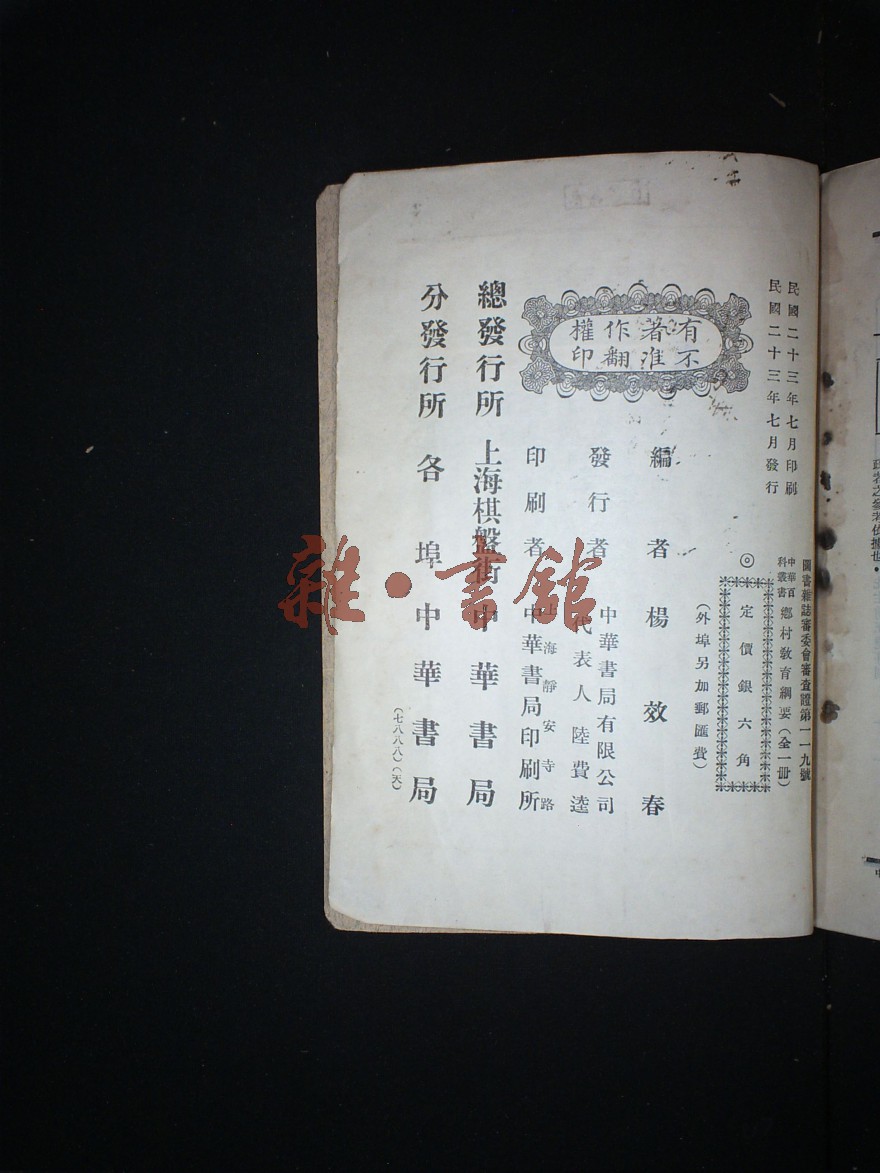 民國二十三年七月印刷
民國二十三年七月發行
圖書雜誌審委會審查證第一一九號
中華百科叢書
鄉村教育綱要(全一冊)
◎定價銀六角
(外埠另加郵匯費)
有著作權
不准翻印
編者 楊效春
發行者 中華書局有限公司
代表人 陸費逵
印刷者 上海靜安寺路
中華書局印刷所
總發行所 上海棋盤街 中華書局
分發行所 各埠 中華書局
(七八八八)(天)
雜·書館